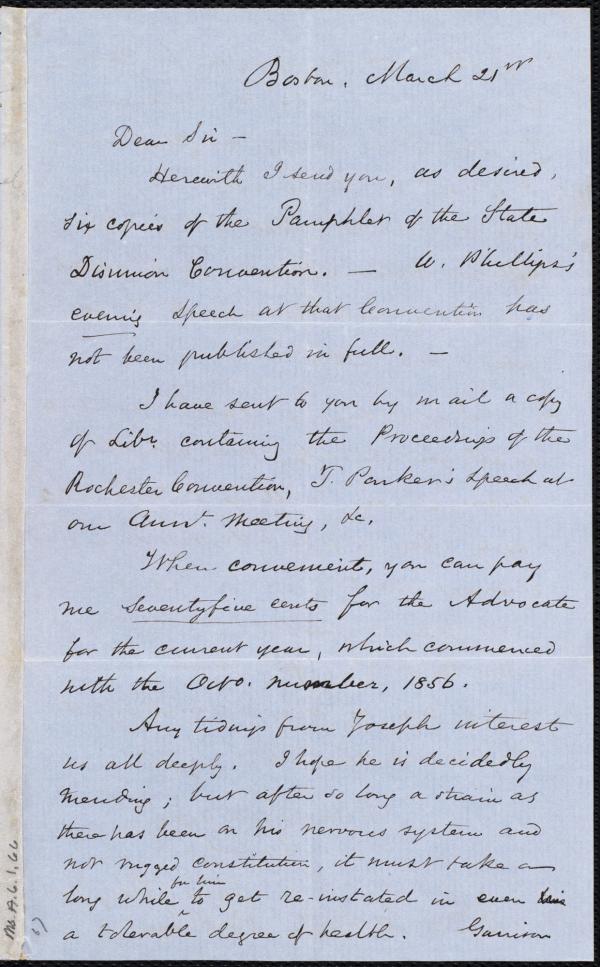 Boston. March 21st
Dear Sir -
Herewith I send you, as desired,
six copies of the Pamphlet of the State
Disunion Convention. — W. Phillips's
evening speech at that Convention has
not been published in full. —
I have sent to you by mail a copy
of Libr. containing the Proceedings of the
Rochester Convention, T. Parker's speech at
our Annl. Meeting, &c.
When convenient, you can pay
me seventyfive cents for the Advocate
for the current year, which commenced
with the Octo. number, 1856.
Any tidings from Joseph interest
us all deeply. I hope he is decidedly
mending; but after so long a strain as
there has been on his nervous system and
not rugged constitution, it must take a
long while for him to get re-instated in even
a tolerable degree of health. Garrison
Ms. A.6.1.66